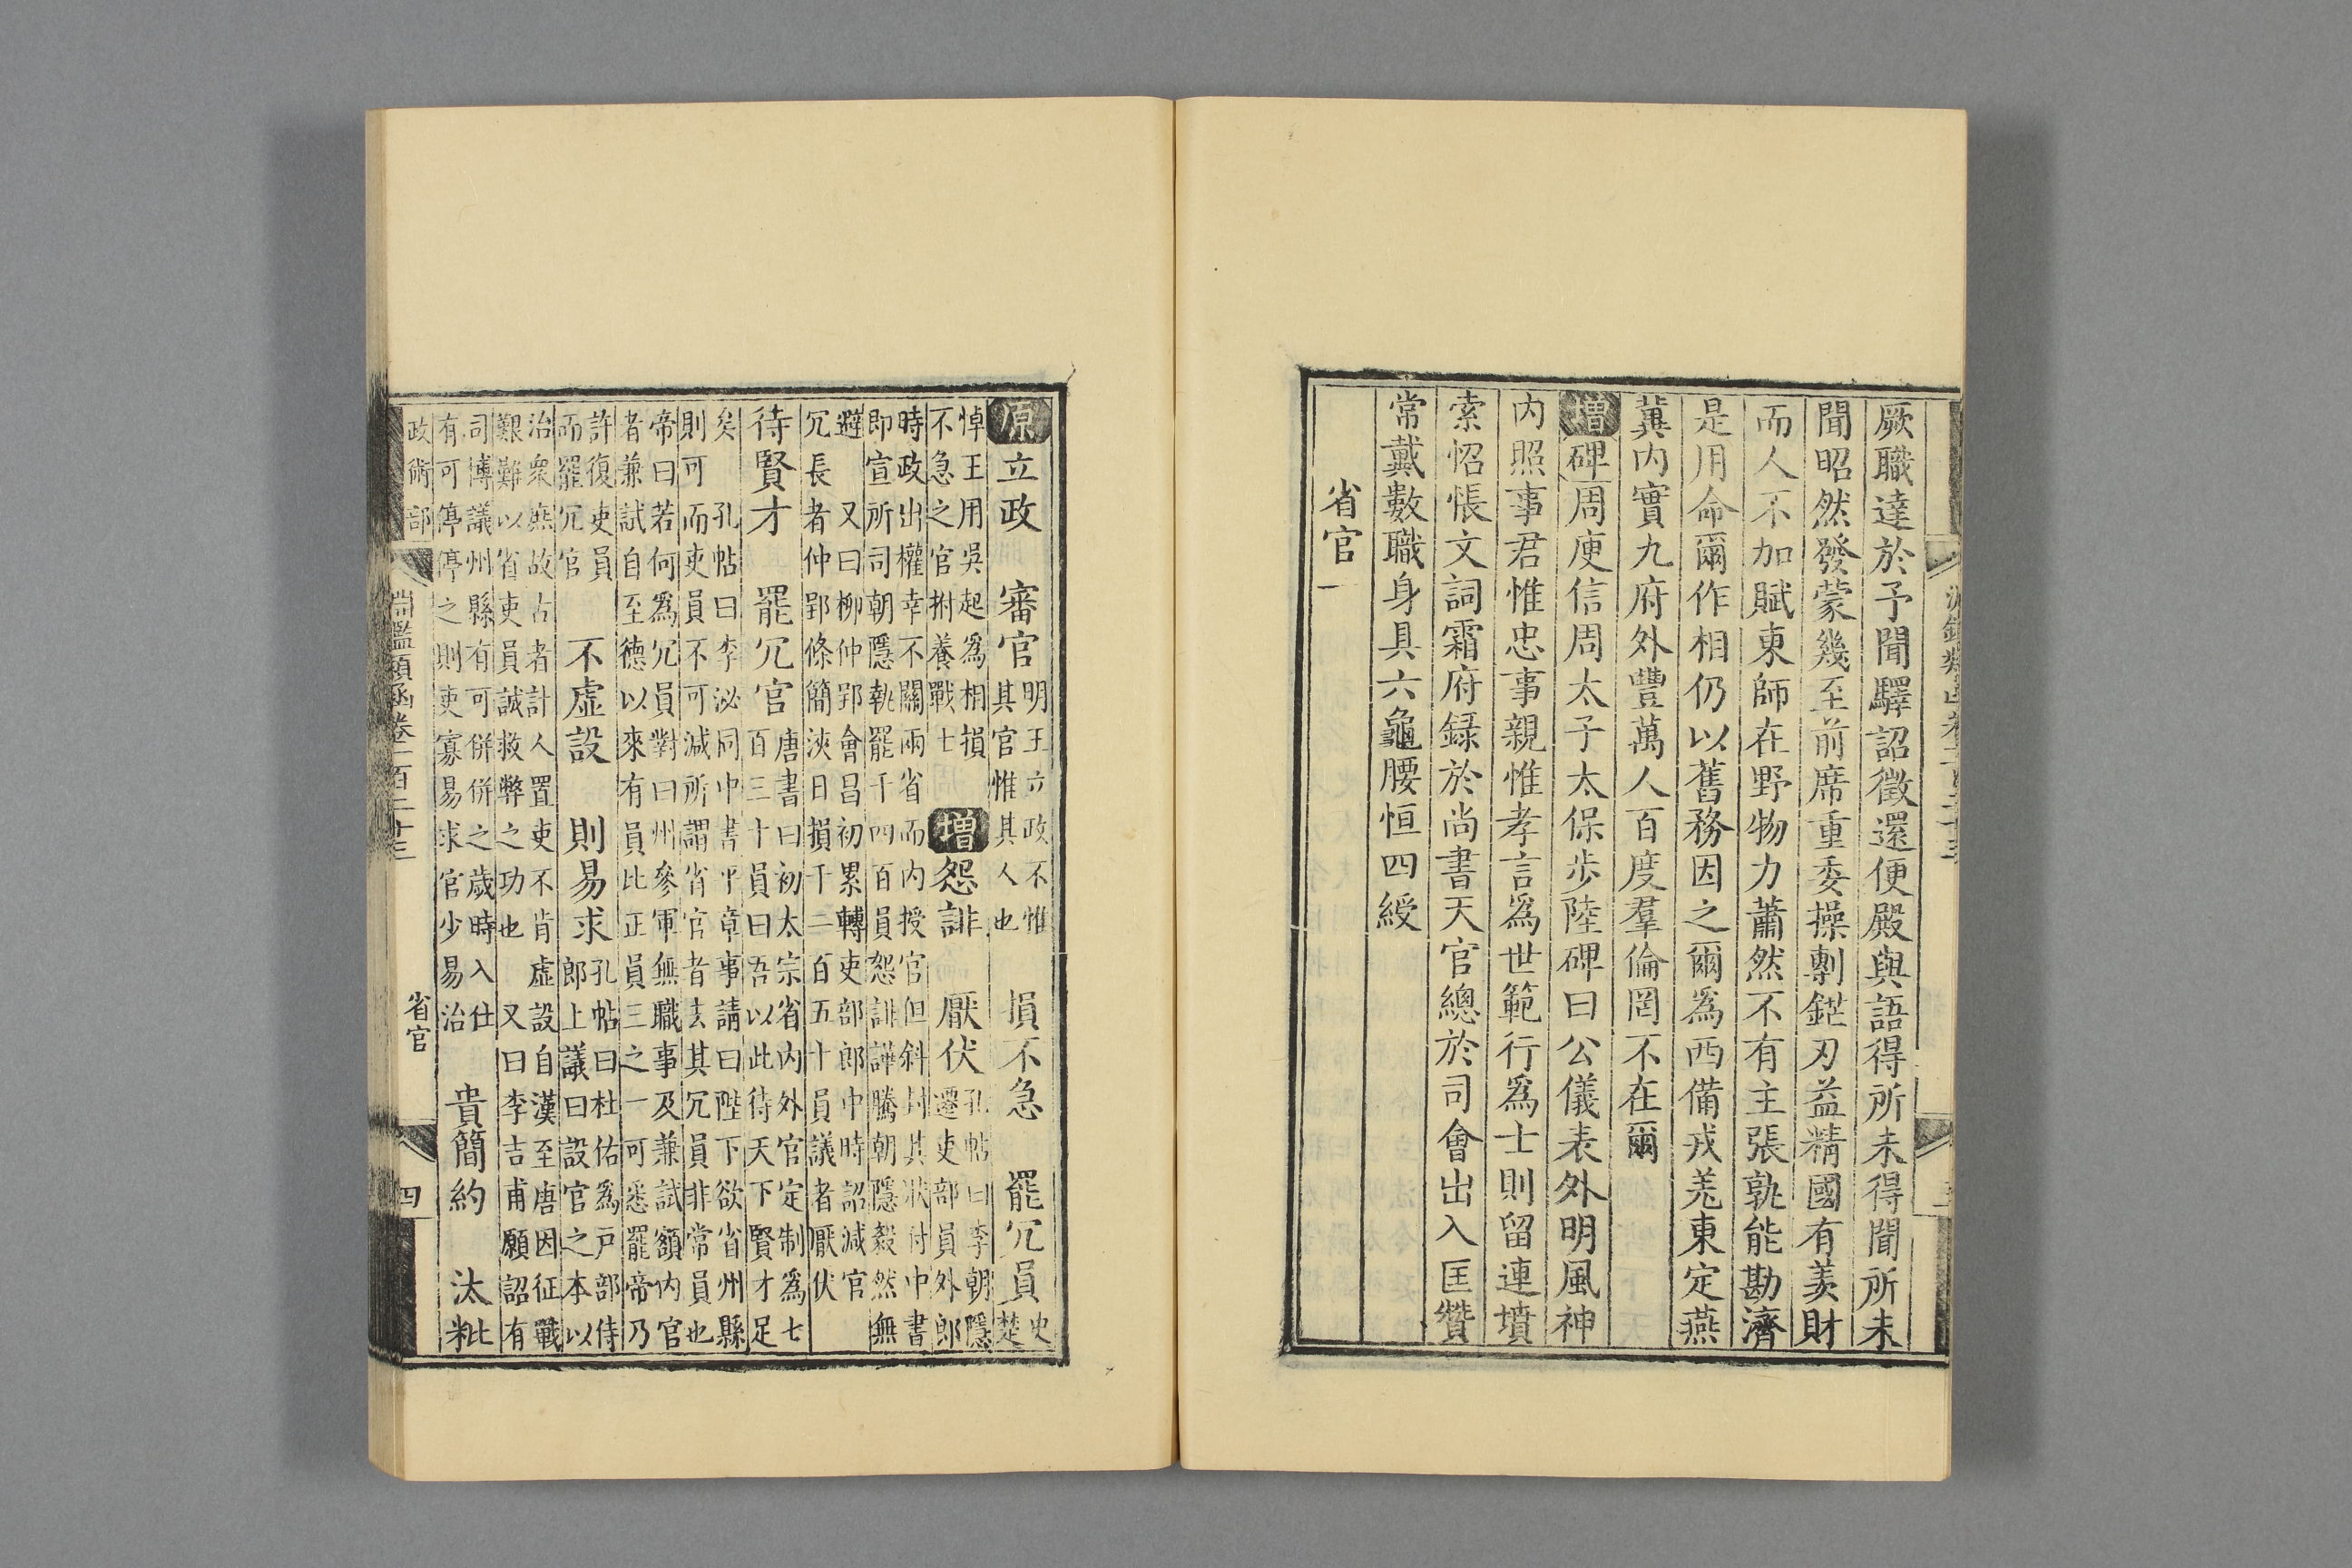 厥職達於予聞驛詔徵還便殿與語得所未得聞所未
聞昭然發蒙幾至前席重委操剸鋩刃益精國有羡財
而人不加賦東師在野物力蕭然不有主張孰能勘濟
是用命爾作相仍以舊務因之爾爲西備戎羌東定燕
冀內實九府外豐萬人百度羣倫罔不在爾
增碑周庾信周太子太保步陸碑曰公儀表外明風神
內照事君惟忠事親惟孝言爲世範行爲士則留連墳
索怊悵文詞霜府錄於尚書天官總於司會出入匡贊
常戴數職身具六龜腰恒四綬
省官一
原立政 審官明王立政不惟其官惟其人也 損不急 罷冗員史楚
悼王用吳起爲相損不急之官拊養戰士 增怨誹 厭伏孔帖曰李朝隱遷吏部員外郎
時政出權幸不關兩省而內授官但斜封其狀付中書即宣所司朝隱執罷千四百員怨誹譁騰朝隱毅然無
避 又曰柳仲郢會昌初累轉吏部郎中時詔減官冗長者仲郢條簡浹日損千二百五十員議者厭伏
待賢才 罷冗官唐書曰初太宗省內外官定制爲七百三十員曰吾以此待天下賢才足
矣 孔帖曰李泌同中書平章事請曰陛下欲省州縣則可而吏員不可減所謂省官者去其冗員非常員也
帝曰若何爲冗員對曰州參軍無職事及兼試額內官者兼試自至德以來有員比正員三之一可悉罷帝乃
許復吏員而罷冗官 不虛設 則易求孔帖曰杜佑爲戶部侍郎上議曰設官之本以
治衆庶故古者計人置吏不肯虛設自漢至唐因征戰艱難以省吏員誠救弊之功也 又曰李吉甫願詔有
司博議州縣有可併併之歲時入仕有可停停之則吏寡易求官少易治 貴簡約 汰粃
政術部 淵鑑類函卷二百二十三 省官 四